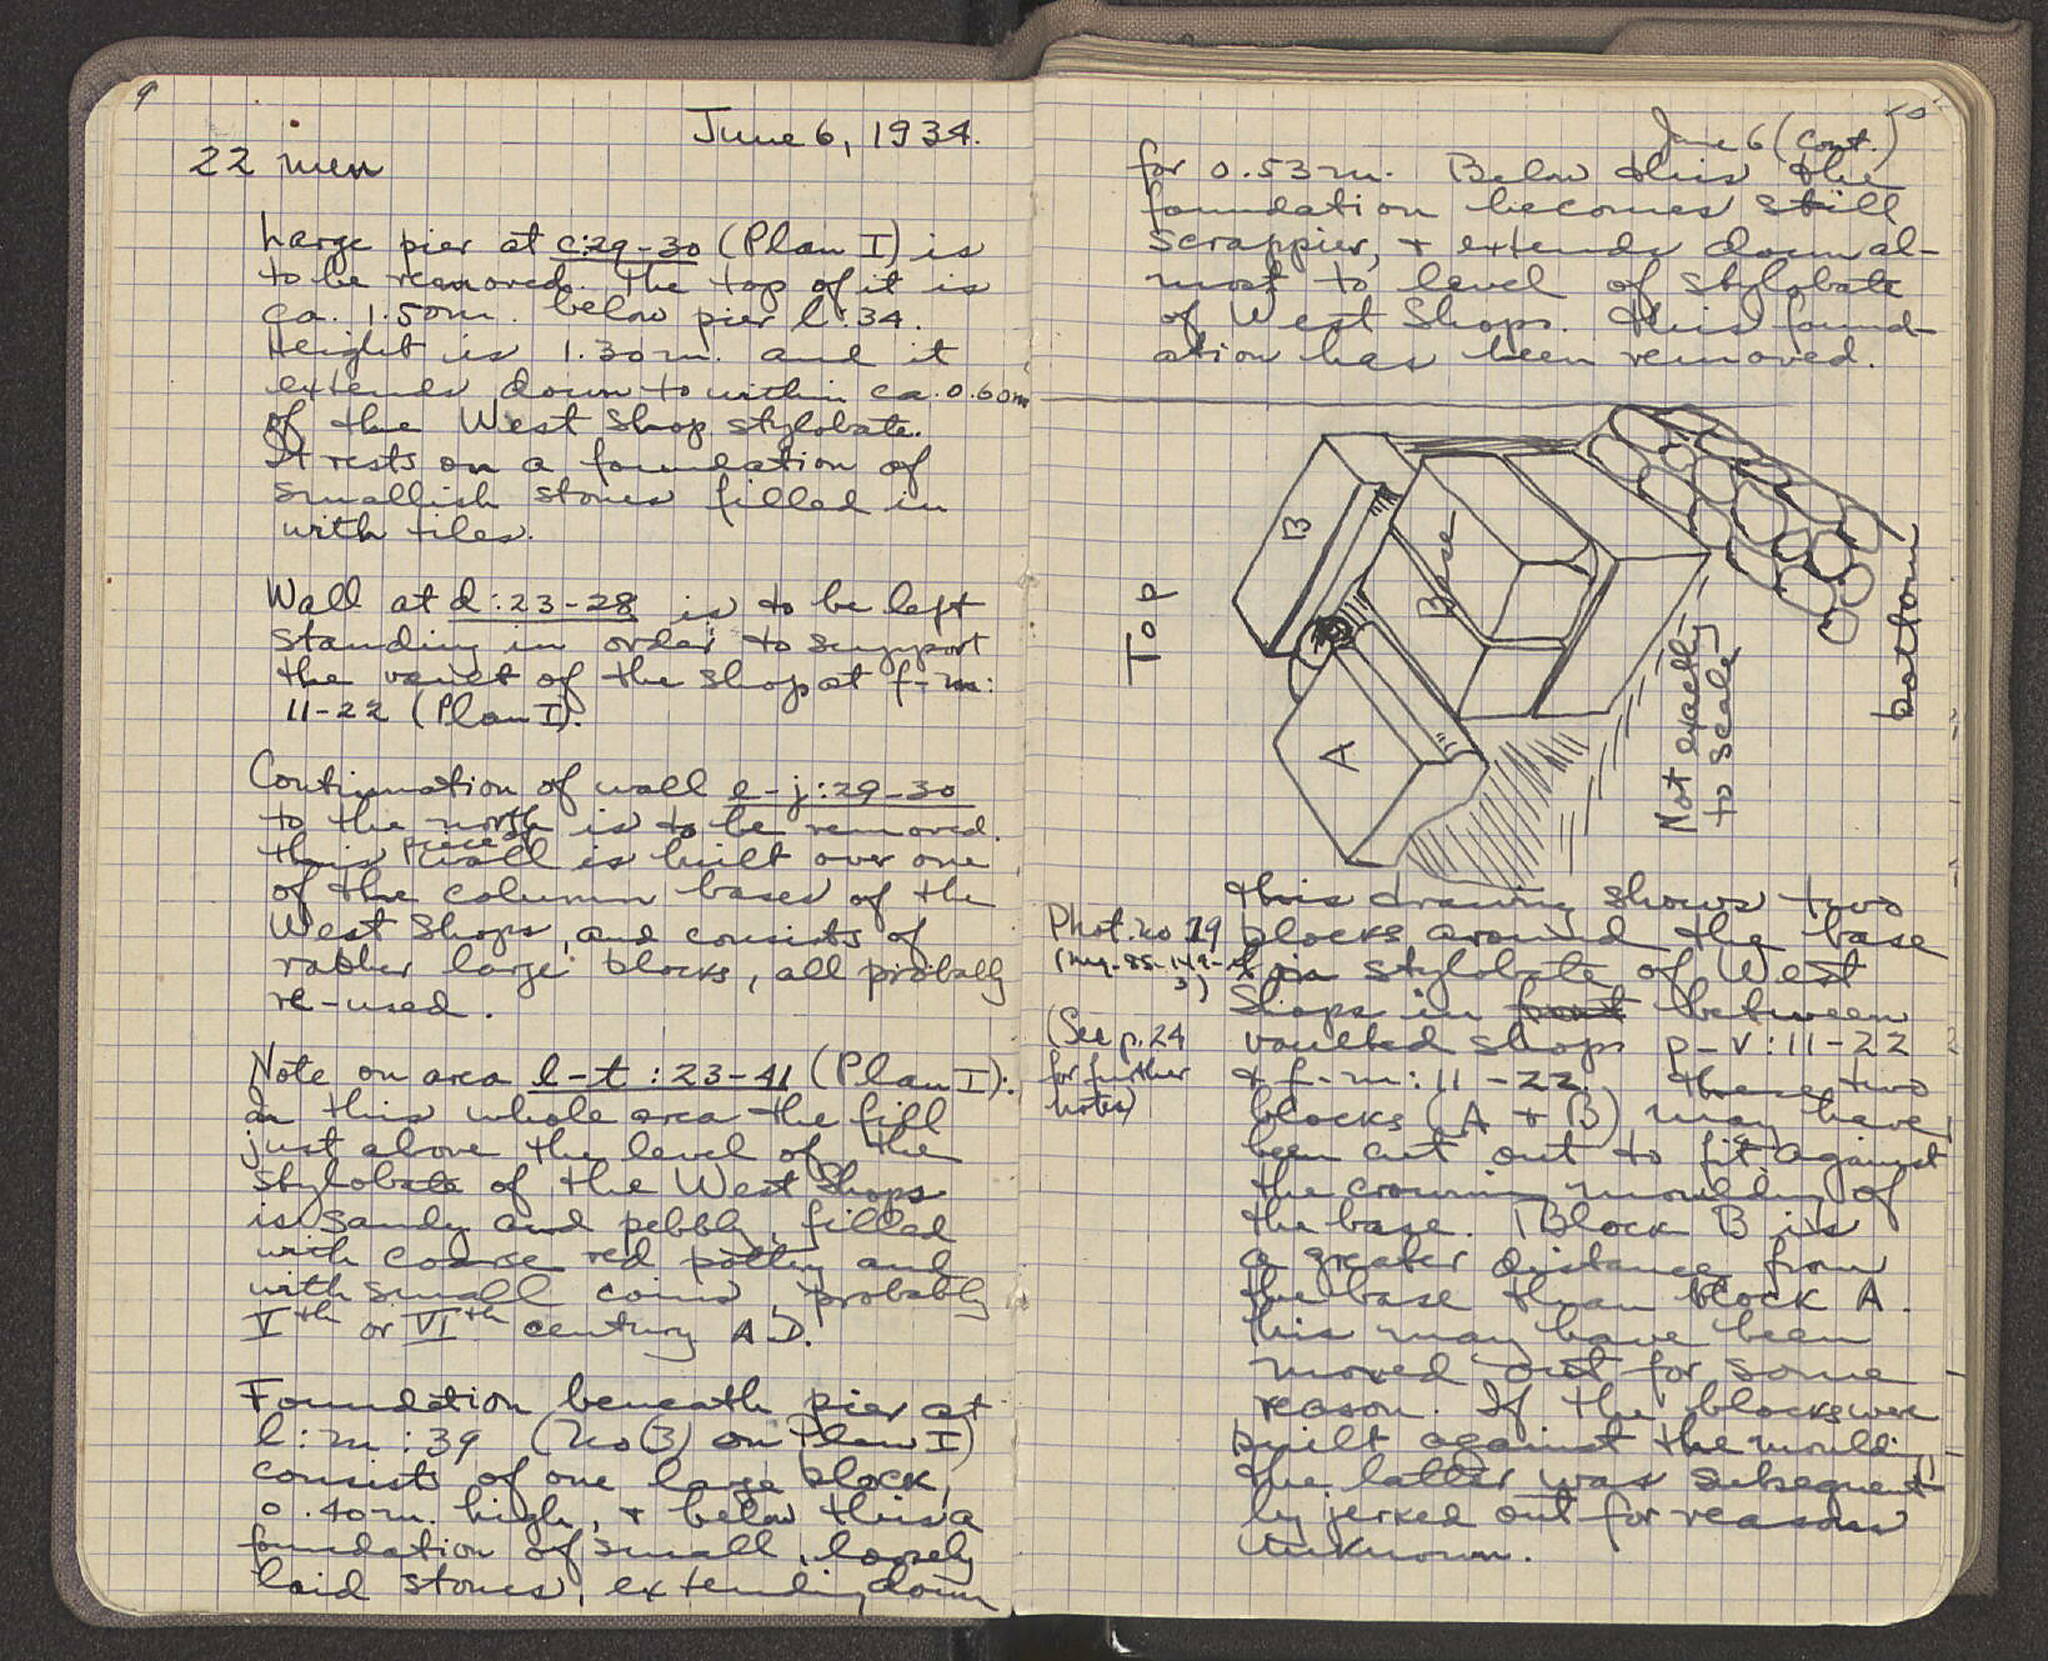 9
June 6, 1934.
22 men
Large pier at c:29-30 (Plan I) is
to be removed. The top of it is
ca. 1.50m. below pier l:34.
Height is 1.30m. and it
extends down to within ca. 0.60m
of the West Shop stylobate.
It rests on a foundation of
smallish stones filled in
with tiles.
Wall at d:23-28 is to be left
standing in order to support
the vault of the shop at f-m:
11-22 (Plan I).
Continuation of wall e-j:29-30
to the north is to be removed.
This piece of wall is built over one
of the column bases of the
West Shops, and consists of
rather large blocks, all probably
re-used.
Note on area l-t:23-41 (Plan I):
In this whole area the fill
just above the level of the
stylobate of the West Shops
is sandy and pebbly, filled
with coarse red pottery and
with small coins, probably
Vth or VIth century A.D.
Foundation beneath pier at
l:m:39 (No (3) on Plan I)
consists of one large block,
0.40m. high, + below this a
foundation of small, loosely
laid stones, extending down
10
June 6 (cont.)
for 0.53m. Below this the
foundation becomes still
scrappier, + extends down al-
most to level of stylobate
of West Shops. This found-
ation has been removed.
Top
B
Base
A
Not exactly
to scale
bottom
This drawing shows two
Phot. no 19 blocks around the base
in stylobate of West
Shops in front between
(See p. 24
for further
notes)
vaulted shops p-v:11-22
+ f-m:11-22. These two
blocks (A + B) may have
been cut out to fit against
the crowning moulding of
the base. Block B is
a greater distance from
the base than block A.
This may have been
moved out for some
reason. If the blocks were
built against the moulding
the latter was subsequent-
ly jerked out for reasons
unknown.